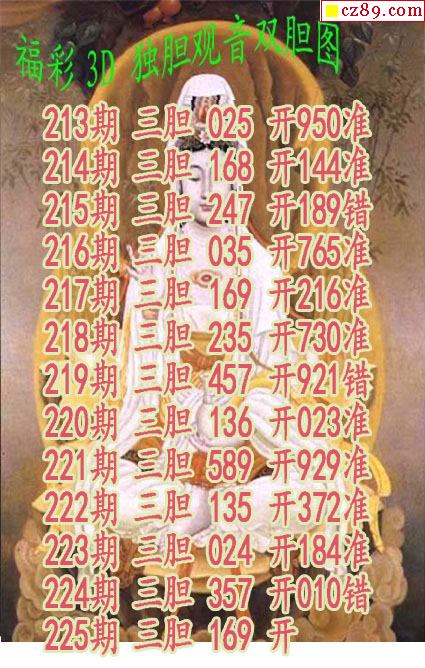 cz89.com
福彩 3D 独胆观音双胆图
213期 三胆 025 开950准
214期 三胆 168 开144准
215期 三胆 247 开189错
216期 三胆 035 开765准
217期 三胆 169 开216准
218期 三胆 235 开730准
219期 三胆 457 开921错
220期 三胆 136 开023准
221期 三胆 589 开929准
222期 三胆 135 开372准
223期 三胆 024 开184准
224期 三胆 357 开010错
225期 三胆 169 开